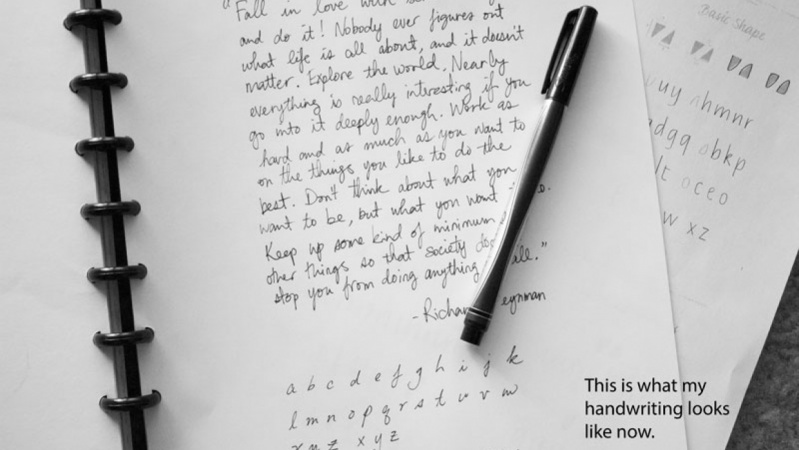 "Fall in love with
and do it! Nobody ever figures out
what life is all about, and it doesn't
matter. Explore the world. Nearly
everything is really interesting if you
go into it deeply enough. Work as
hard and as much as you want to
on the things you like to do the
best. Don't think about what you
want to be, but what you want
Keep up some kind of minimum
other things so that society
stop you from doing anything all."
-Richard Feynman
a b c d e f g h i j k
l m n o p q r s t u v w
x y z x y z
Basic Shape
uuy nhmnr
adgq obkp
lt oceo
w x z
This is what my
handwriting looks
like now.